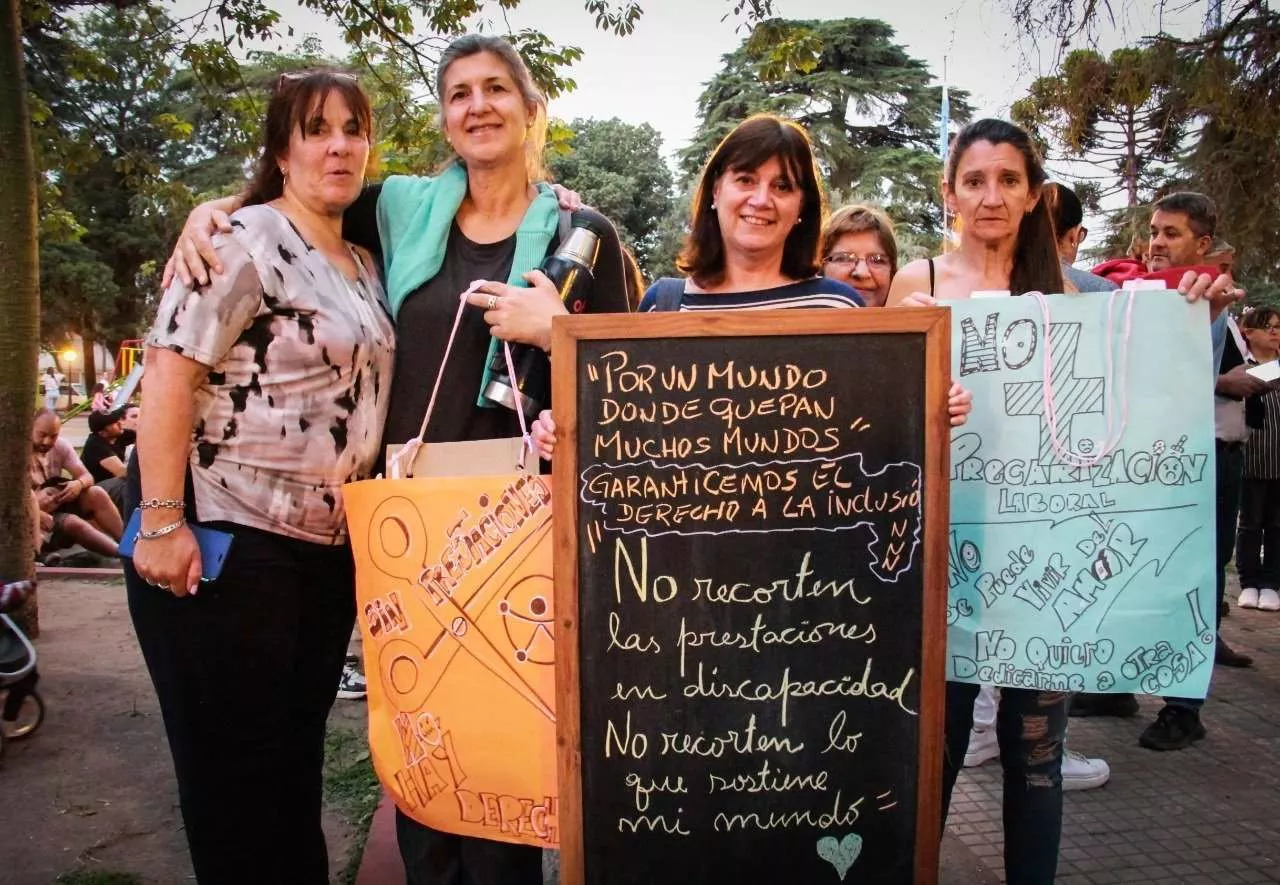 SIN
PRESTACIONES
NO
HAY
DERECH
"POR UN MUNDO
DONDE QUEPAN
MUCHOS MUNDOS"
GARANTICEMOS EL
DERECHO A LA INCLUSIÓ
N
N
N
"No recorten
las prestaciones
en discapacidad
No recorten lo
que sostiene
mi mundo"
NO +
PRECARIZACIÓN
LABORAL
NO
Se Puede
Vivir DEL
AMOR
No Quiero
Dedicarme a OTRA
COSA!